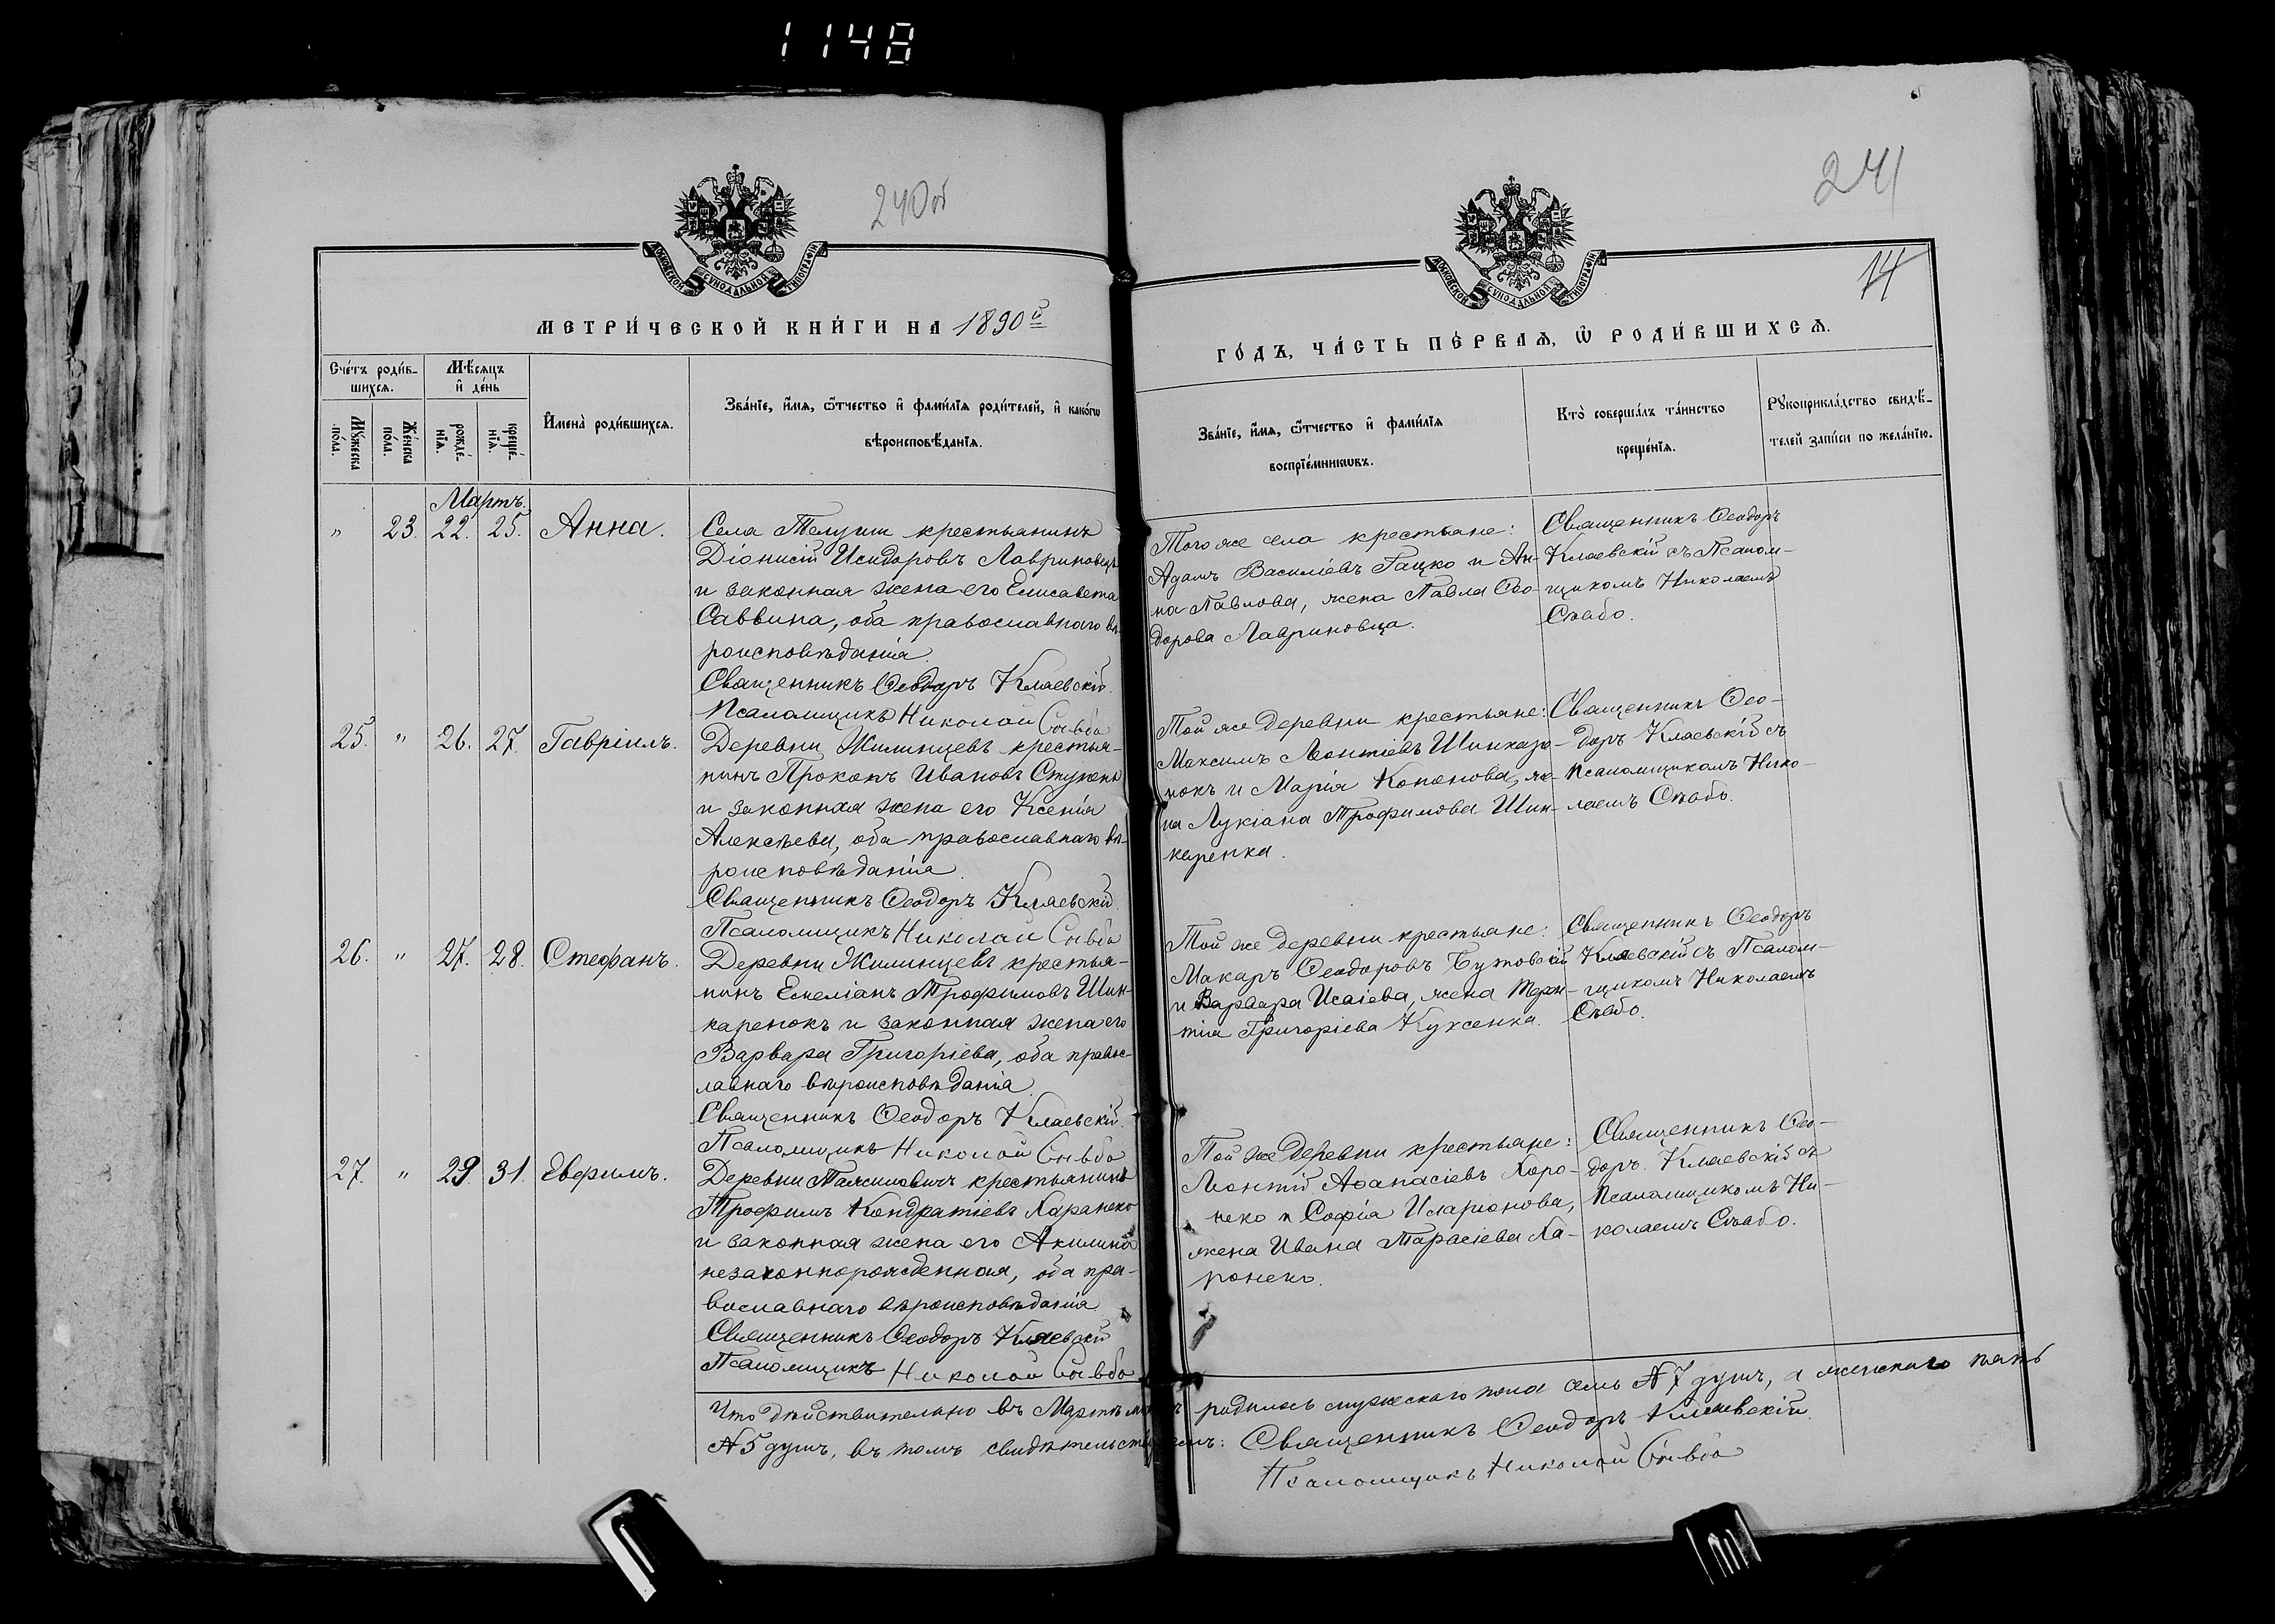 1148
240об
241
14
МОСКОВСКОЙ СѴНОДАЛЬНОЙ ТИПОГРАФІИ
МОСКОВСКОЙ СѴНОДАЛЬНОЙ ТИПОГРАФІИ
МЕТРИ́ЧЕСКОЙ КНИ́ГИ НА 1890й
ГО́ДЪ, ЧА́СТЬ ПЕ́РВАѦ, Ѽ РОДИ́ВШИХСѦ.
Сче́тъ роди́в-
шихсѧ.
Мꙋ́жеска по́ла.
Же́нска по́ла.
Мѣ́сѧцъ
и҆ де́нь
рожде́-
нїѧ.
креще́-
нїѧ.
И҆мена̀ роди́вшихсѧ.
Зва́нїе, и҆́мѧ, ѻ҆́тчество и҆ фами́лїѧ роди́телей, и҆ како́гѡ
вѣроисповѣ́данїѧ.
Зва́нїе, и҆́мѧ, ѻ҆́тчество и҆ фами́лїѧ
воспрїе́мникѡвъ.
Кто̀ соверша́лъ та́инство
креще́нїѧ.
Рꙋкоприкла́дство свидѣ́-
телей за́писи по жела́нїю.
Мартъ.
" 23. 22. 25. Анна.
Села Телуши крестьянинъ
Діонисій Исидоровъ Лавриновецъ
и законная жена его Елисавета
Саввина, оба православнаго вѣ-
роисповѣданія.
Священникъ Ѳеодоръ Клаевскій.
Псаломщикъ Николай Съвбо
Того же села крестьяне:
Адамъ Василіевъ Гацко и Ан-
на Павлова, жена Павла Сво-
дорова Лавриновца.
Священникъ Ѳеодоръ
Клаевскій съ Псалом-
щикомъ Николаемъ
Съвбо.
25. " 26. 27. Гавріилъ.
Деревни Жилинцевъ крестья-
нинъ Прокопъ Ивановъ Ступень
и законная жена его Ксенія
Алексѣева, оба православнаго вѣ-
роисповѣданія.
Священникъ Ѳеодоръ Клаевскій.
Псаломщикъ Николай Съвбо
Той же деревни крестьяне:
Максимъ Леонтіевъ Шинкаре-
нокъ и Марія Кононова, же-
на Лукіана Трофимова Шин-
каренка.
Священникъ Ѳео-
доръ Клаевскій съ
Псаломщикомъ Нико-
лаемъ Съвбо.
26. " 27. 28. Стефанъ.
Деревни Жилинцевъ крестья-
нинъ Емеліанъ Трофимовъ Шин-
каренокъ и законная жена его
Варвара Григоріева, оба правос-
лавнаго вѣроисповѣданія.
Священникъ Ѳеодоръ Клаевскій.
Псаломщикъ Николай Съвбо
Той же деревни крестьяне:
Макаръ Ѳеодоровъ Бутовскій
и Варвара Исаіева, жена Терен-
тія Григоріева Куксенка.
Священникъ Ѳеодоръ
Клаевскій съ Псалом-
щикомъ Николаемъ
Съвбо.
27. " 29. 31. Евфимъ.
Деревни крестьянинъ
Трофимъ Кондратіевъ Харонеко
и законная жена его Акилина
незаконнорожденная, оба пра-
вославнаго вѣроисповѣданія.
Священникъ Ѳеодоръ Клаевскій
Псаломщикъ Николай Съвбо
Той же деревни крестьяне:
Леонтій Аѳанасіевъ Харо-
неко и Софія Иларіонова,
жена Ивана Тарасіева Ха-
ронеко.
Священникъ Ѳео-
доръ Клаевскій съ
Псаломщикомъ Ни-
колаемъ Съвбо.
Что дѣйствительно въ Мартѣ родилось мужескаго пола семь № 7 душъ, а женскаго пять
№ 5 душъ, въ томъ свидѣтельствуемъ: Священникъ Ѳеодоръ Клаевскій.
Псаломщикъ Николай Съвбо